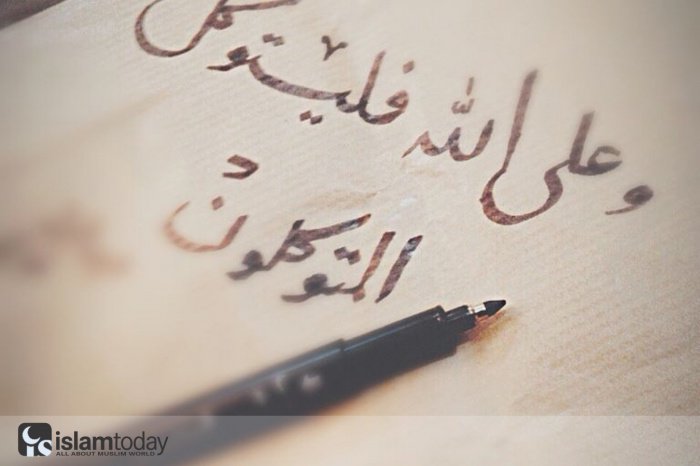 وعلى الله فليتوكل
المتوكلون
islamtoday
ALL ABOUT MUSLIM WORLD